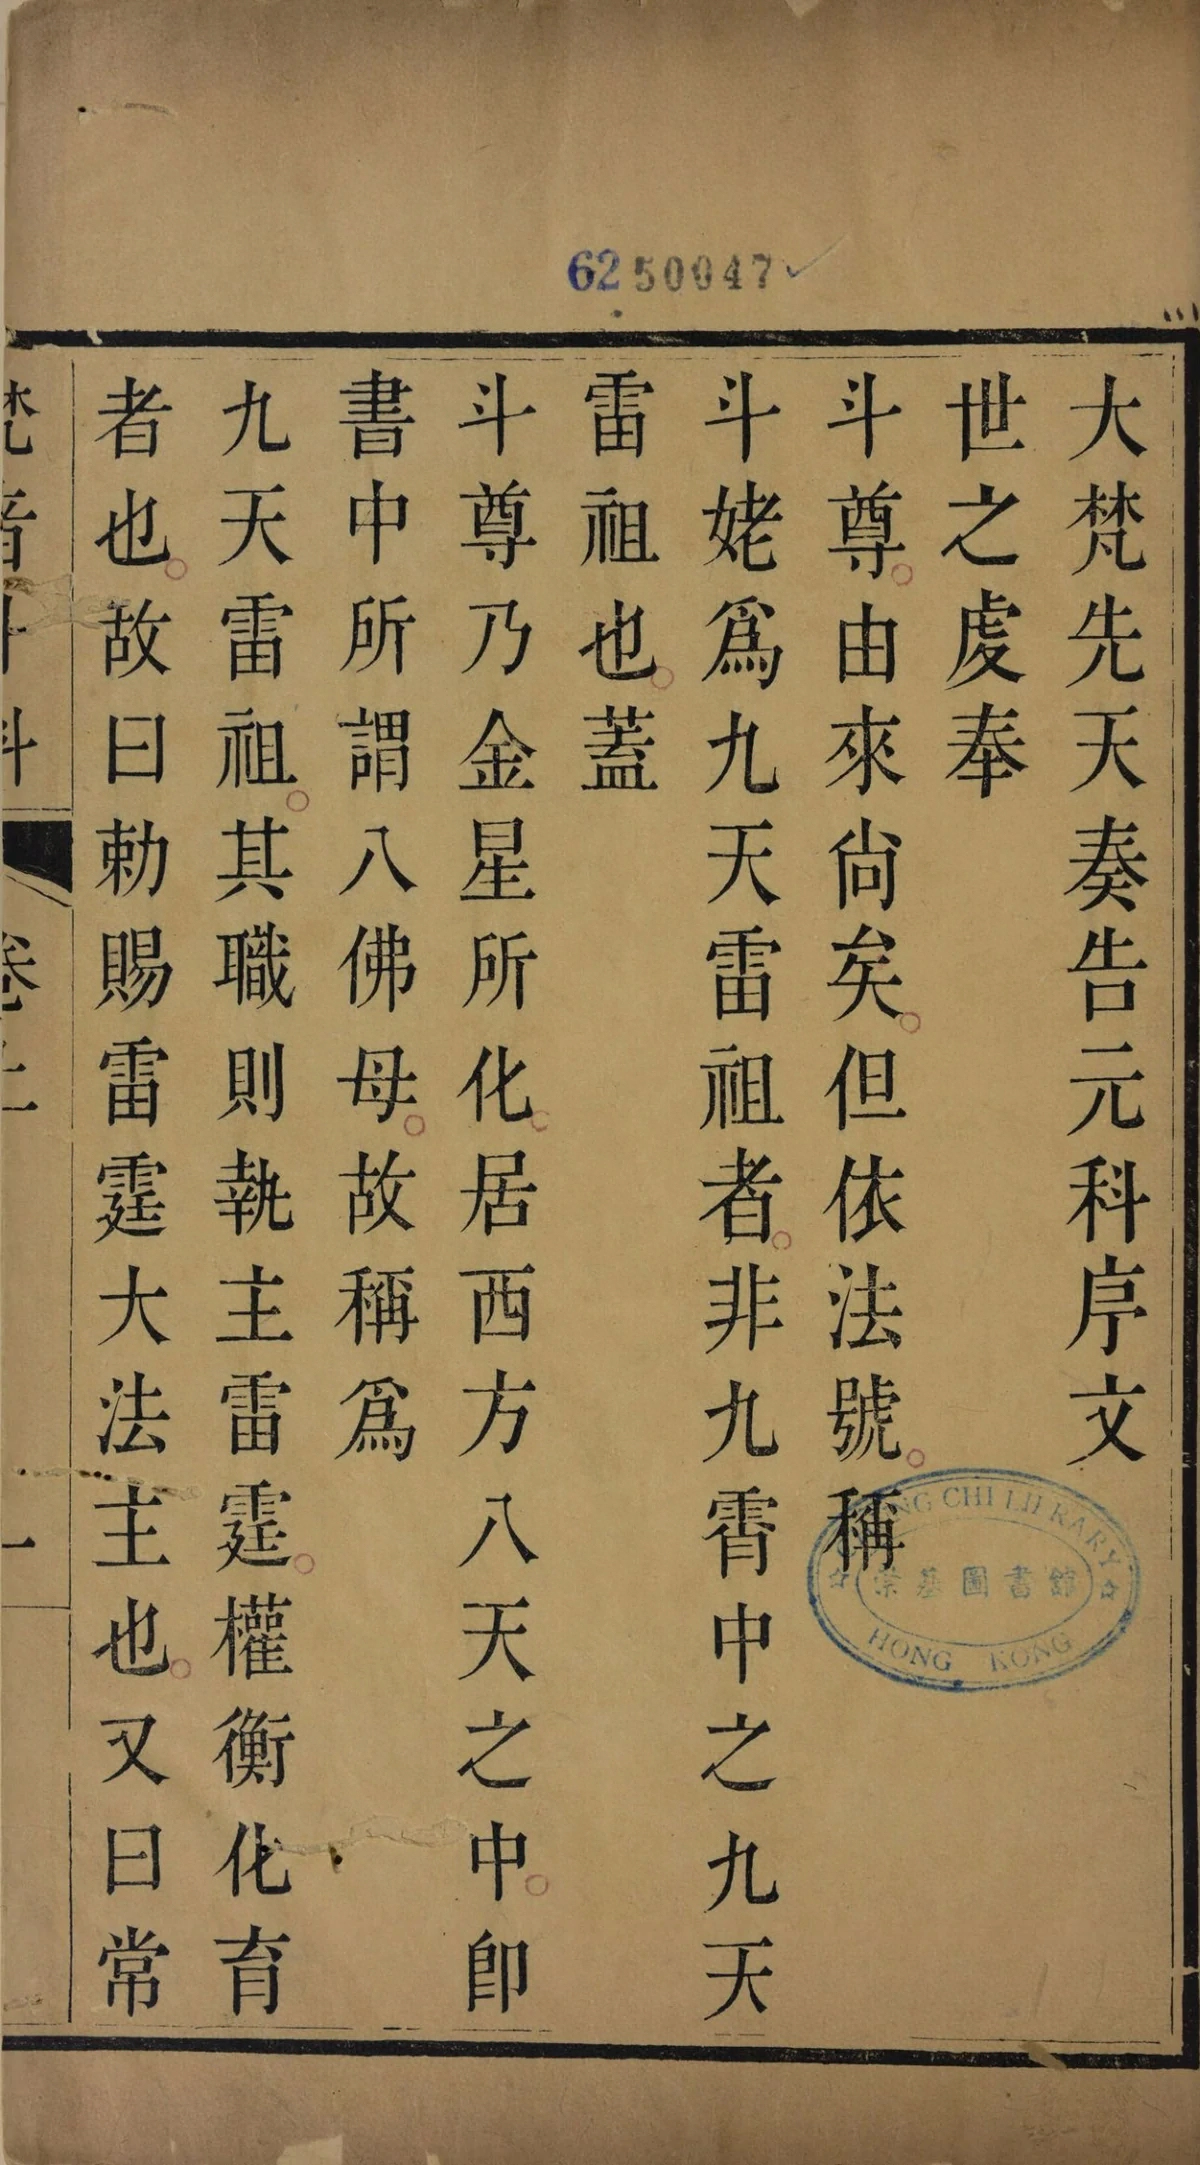 62 50047
大梵先天奏告元科序文
世之虔奉
斗尊由來尙矣但依法號稱
斗姥爲九天雷祖者非九霄中之九天
雷祖也蓋
斗尊乃金星所化居西方八天之中卽
書中所謂八佛母故稱爲
九天雷祖其職則執主雷霆權衡化育
者也故曰勅賜雷霆大法主也又曰常
梵音斗科
卷上
一
CHUNG CHI LIBRARY
崇基圖書館
HONG KONG